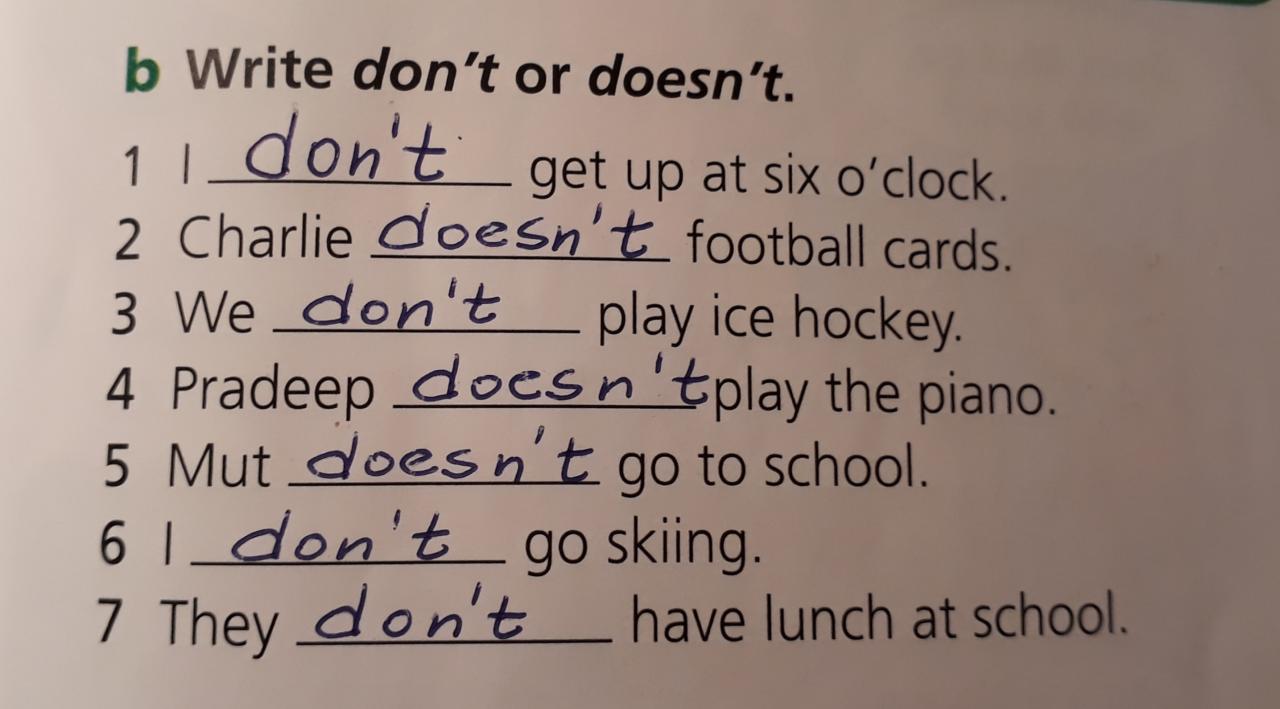 b Write don't or doesn't.
1 I don't get up at six o'clock.
2 Charlie doesn't football cards.
3 We don't play ice hockey.
4 Pradeep doesn't play the piano.
5 Mut doesn't go to school.
6 I don't go skiing.
7 They don't have lunch at school.